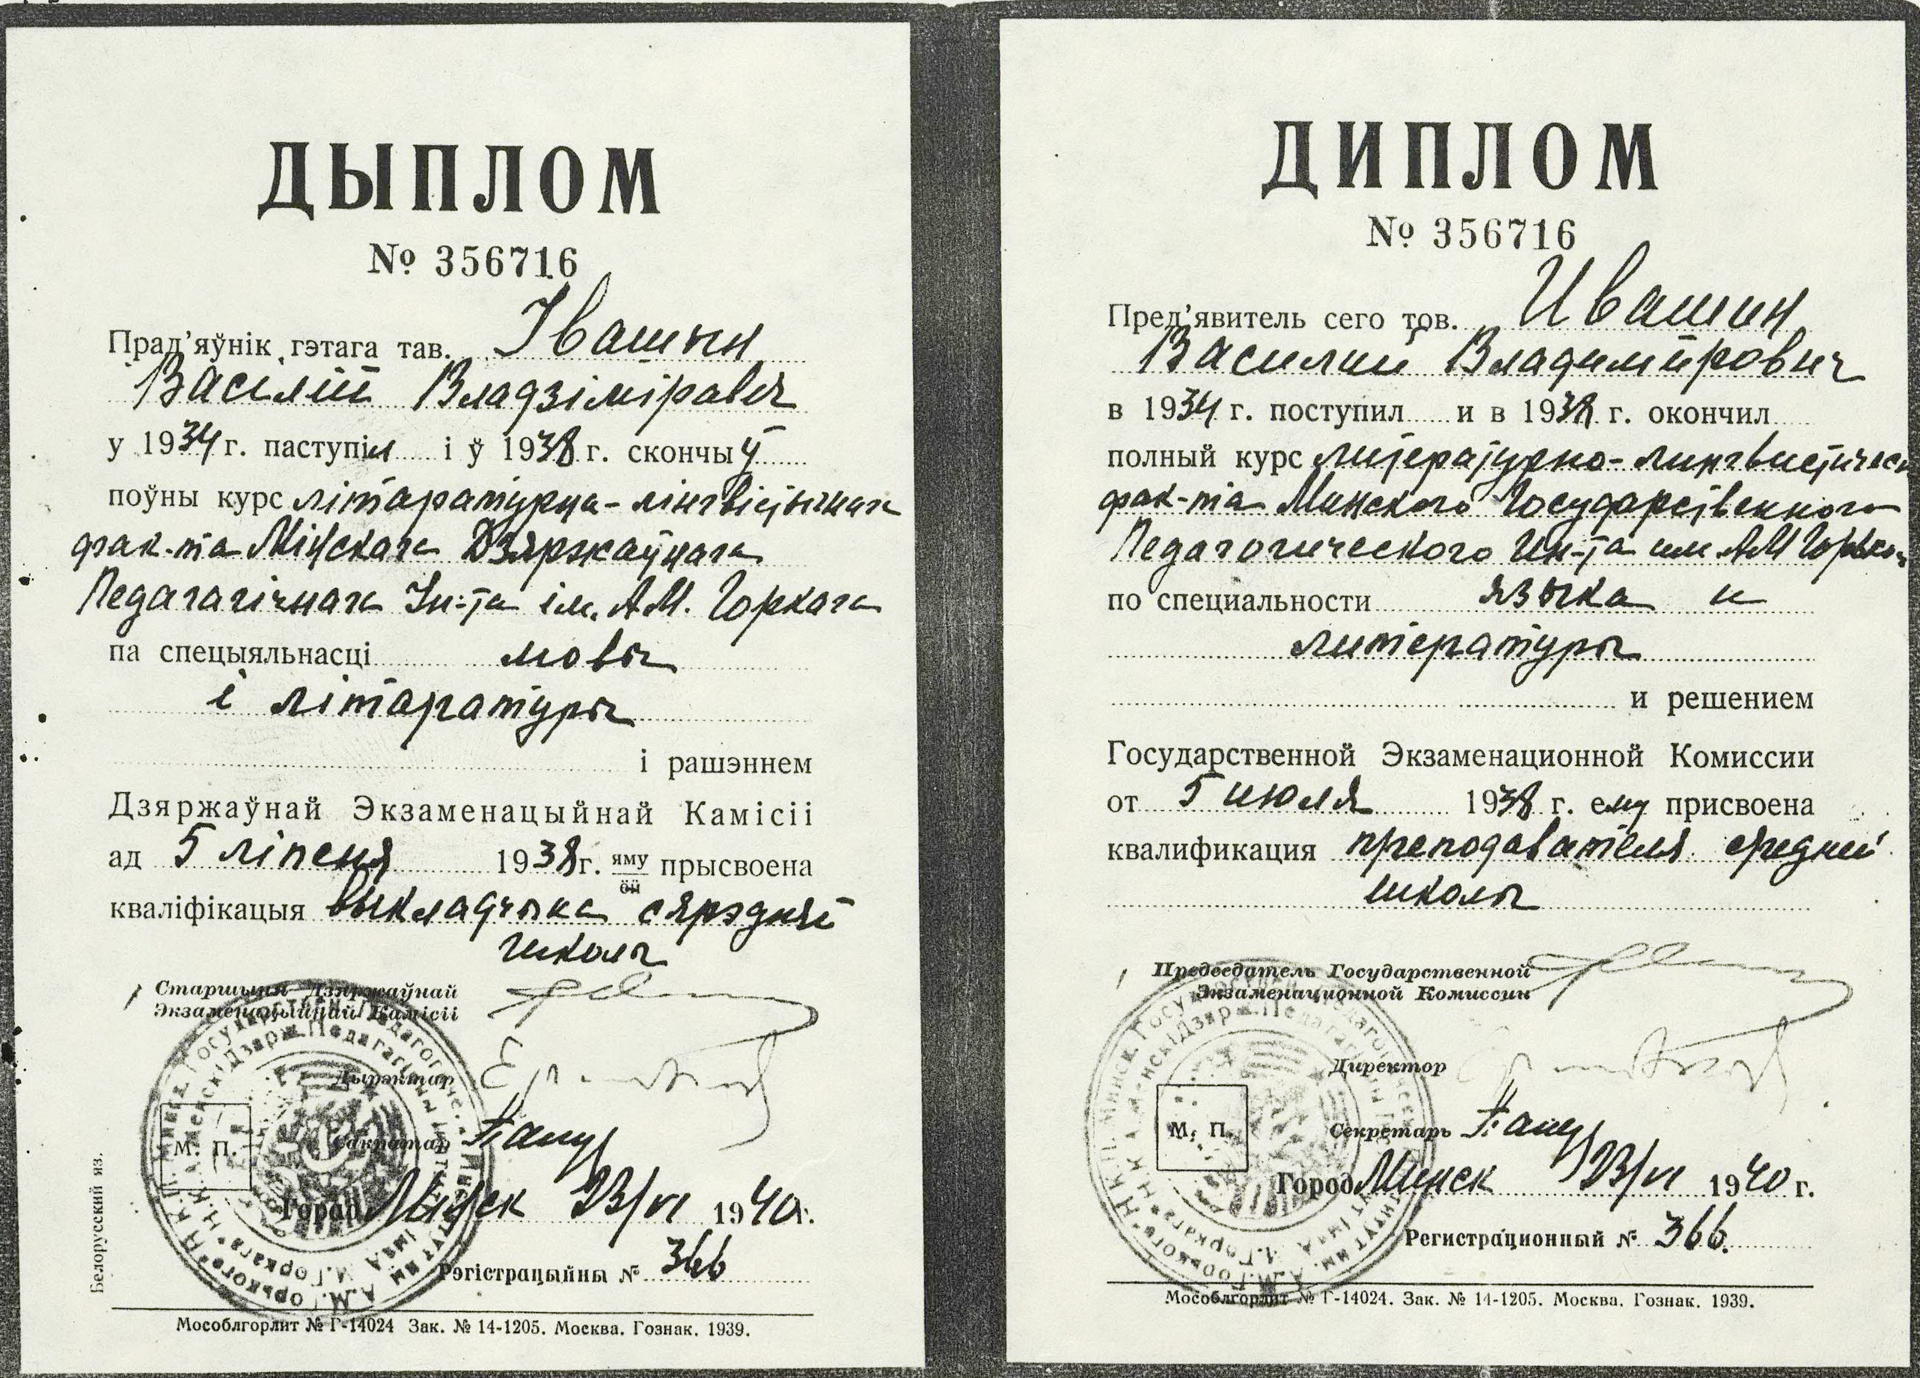 ДЫПЛОМ
№ 356716
Прад’яўнік гэтага тав. Івашын
Васілій Владзіміравіч
у 1934 г. паступіл і ў 1938 г. скончыў
поўны курс літаратурна-лінгвістычнага
фак-та Мінскага Дзяржаўнага
Педагагічнага Ін-та ім. А.М. Горкага
па спецыяльнасці мовы
і літаратуры
і рашэннем
Дзяржаўнай Экзаменацыйнай Камісіі
ад 5 ліпеня 1938 г. яму ёй прысвоена
кваліфікацыя выкладчыка сярэдняй
школы
Старшыня Дзяржаўнай
Экзаменацыйнай Камісіі
Дырэктар
М. П. Сакратар
Горад Мінск 23/VI 1940 г.
Рэгістрацыйны № 366
Мособлгорлит № Г-14024 Зак. № 14-1205. Москва. Гознак. 1939.
Белорусский яз.
ДИПЛОМ
№ 356716
Пред’явитель сего тов. Ивашин
Василий Владимирович
в 1934 г. поступил и в 1938 г. окончил
полный курс литературно-лингвистическ
фак-та Минского Государственного
Педагогического Ин-та им А М Горького
по специальности языка и
литературы
и решением
Государственной Экзаменационной Комиссии
от 5 июля 1938 г. ему присвоена
квалификация преподавателя средней
школы
Председатель Государственной
Экзаменационной Комиссии
Директор
М. П. Секретарь
Город Минск 23/VI 1940 г.
Регистрационный № 366.
Мособлгорлит № Г-14024. Зак. № 14-1205. Москва. Гознак. 1939.